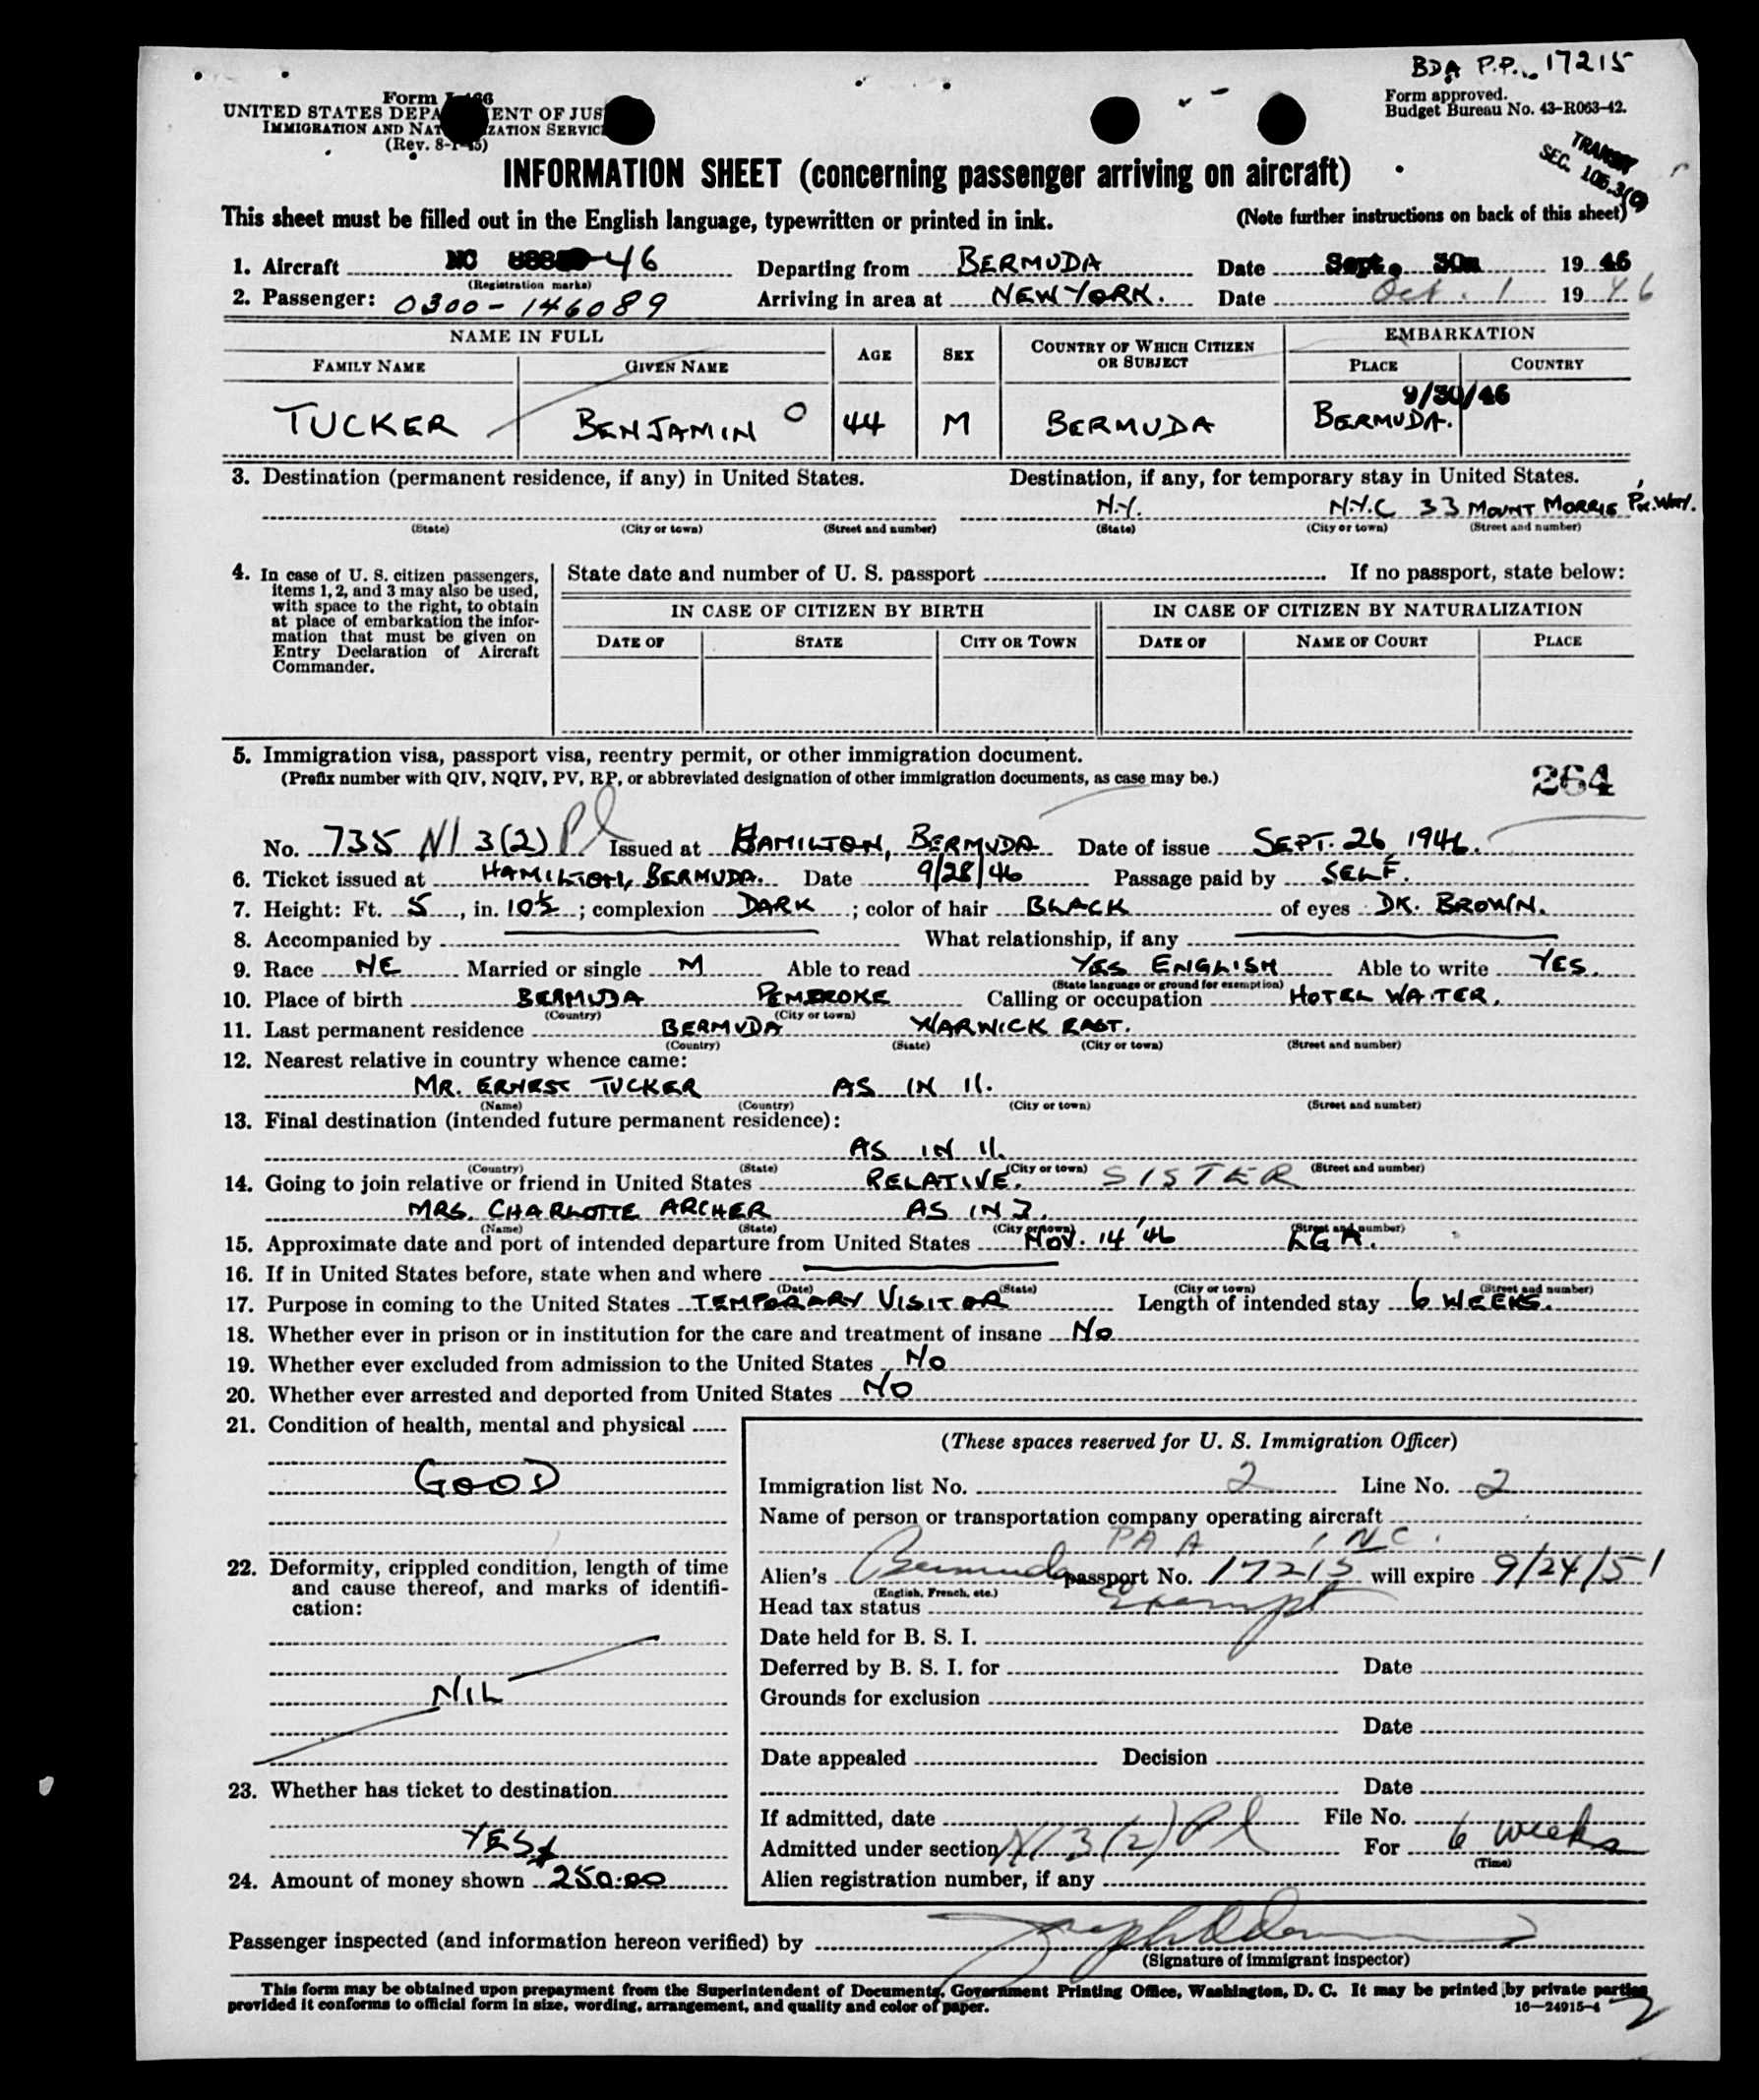 BDA P.P. 17215
Form
UNITED STATES DEPA ENT OF JUS
IMMIGRATION AND NAT ZATION SERVIC
(Rev. 8-1-45)
Form approved.
Budget Bureau No. 43-R063-42.
TRANSIT
SEC. 106.3
INFORMATION SHEET (concerning passenger arriving on aircraft)
This sheet must be filled out in the English language, typewritten or printed in ink. (Note further instructions on back of this sheet)
1. Aircraft NC 46 Departing from BERMUDA Date Sept. 30 1946
(Registration marks)
2. Passenger: 0300-146089 Arriving in area at NEW YORK. Date Oct. 1 1946
NAME IN FULL AGE SEX COUNTRY OF WHICH CITIZEN OR SUBJECT EMBARKATION
FAMILY NAME GIVEN NAME PLACE COUNTRY
9/30/46
TUCKER BENJAMIN O 44 M BERMUDA BERMUDA.
3. Destination (permanent residence, if any) in United States. Destination, if any, for temporary stay in United States.
N.Y. N.Y.C 33 MOUNT MORRIS PK. WAY.
(State) (City or town) (Street and number) (State) (City or town) (Street and number)
4. In case of U. S. citizen passengers, items 1, 2, and 3 may also be used, with space to the right, to obtain at place of embarkation the information that must be given on Entry Declaration of Aircraft Commander.
State date and number of U. S. passport If no passport, state below:
IN CASE OF CITIZEN BY BIRTH IN CASE OF CITIZEN BY NATURALIZATION
DATE OF STATE CITY OR TOWN DATE OF NAME OF COURT PLACE
5. Immigration visa, passport visa, reentry permit, or other immigration document.
(Prefix number with QIV, NQIV, PV, RP, or abbreviated designation of other immigration documents, as case may be.)
264
No. 735 NI 3(2) Pl Issued at HAMILTON, BERMUDA Date of issue SEPT. 26 1946.
6. Ticket issued at HAMILTON, BERMUDA. Date 9/28/46 Passage paid by SELF.
7. Height: Ft. 5, in. 10½; complexion DARK; color of hair BLACK of eyes DK. BROWN.
8. Accompanied by What relationship, if any
9. Race NE Married or single M Able to read YES ENGLISH Able to write YES.
(State language or ground for exemption)
10. Place of birth BERMUDA PEMBROKE Calling or occupation HOTEL WAITER.
(Country) (City or town)
11. Last permanent residence BERMUDA WARWICK EAST.
(Country) (State) (City or town) (Street and number)
12. Nearest relative in country whence came:
MR. ERNEST TUCKER AS IN 11.
(Name) (Country) (City or town) (Street and number)
13. Final destination (intended future permanent residence):
AS IN 11.
(Country) (State) (City or town) (Street and number)
14. Going to join relative or friend in United States RELATIVE. SISTER
MRS. CHARLOTTE ARCHER AS IN 3.
(Name) (State) (City or town) (Street and number)
15. Approximate date and port of intended departure from United States NOV. 14 '46 LGA.
16. If in United States before, state when and where
(Date) (State) (City or town) (Street and number)
17. Purpose in coming to the United States TEMPORARY VISITOR Length of intended stay 6 WEEKS.
18. Whether ever in prison or in institution for the care and treatment of insane No
19. Whether ever excluded from admission to the United States No
20. Whether ever arrested and deported from United States No
21. Condition of health, mental and physical
GOOD
22. Deformity, crippled condition, length of time and cause thereof, and marks of identification:
NIL
23. Whether has ticket to destination
YES
24. Amount of money shown $250.00
(These spaces reserved for U. S. Immigration Officer)
Immigration list No. 2 Line No. 2
Name of person or transportation company operating aircraft
PAA INC.
Alien's Bermuda passport No. 17215 will expire 9/24/51
(English, French, etc.)
Head tax status Exempt
Date held for B. S. I.
Deferred by B. S. I. for Date
Grounds for exclusion
Date
Date appealed Decision
Date
If admitted, date File No.
Admitted under section NI 3(2) Pl For 6 weeks
(Time)
Alien registration number, if any
Passenger inspected (and information hereon verified) by
(Signature of immigrant inspector)
This form may be obtained upon prepayment from the Superintendent of Documents, Government Printing Office, Washington, D. C. It may be printed by private parties
provided it conforms to official form in size, wording, arrangement, and quality and color of paper.
16—24915-4